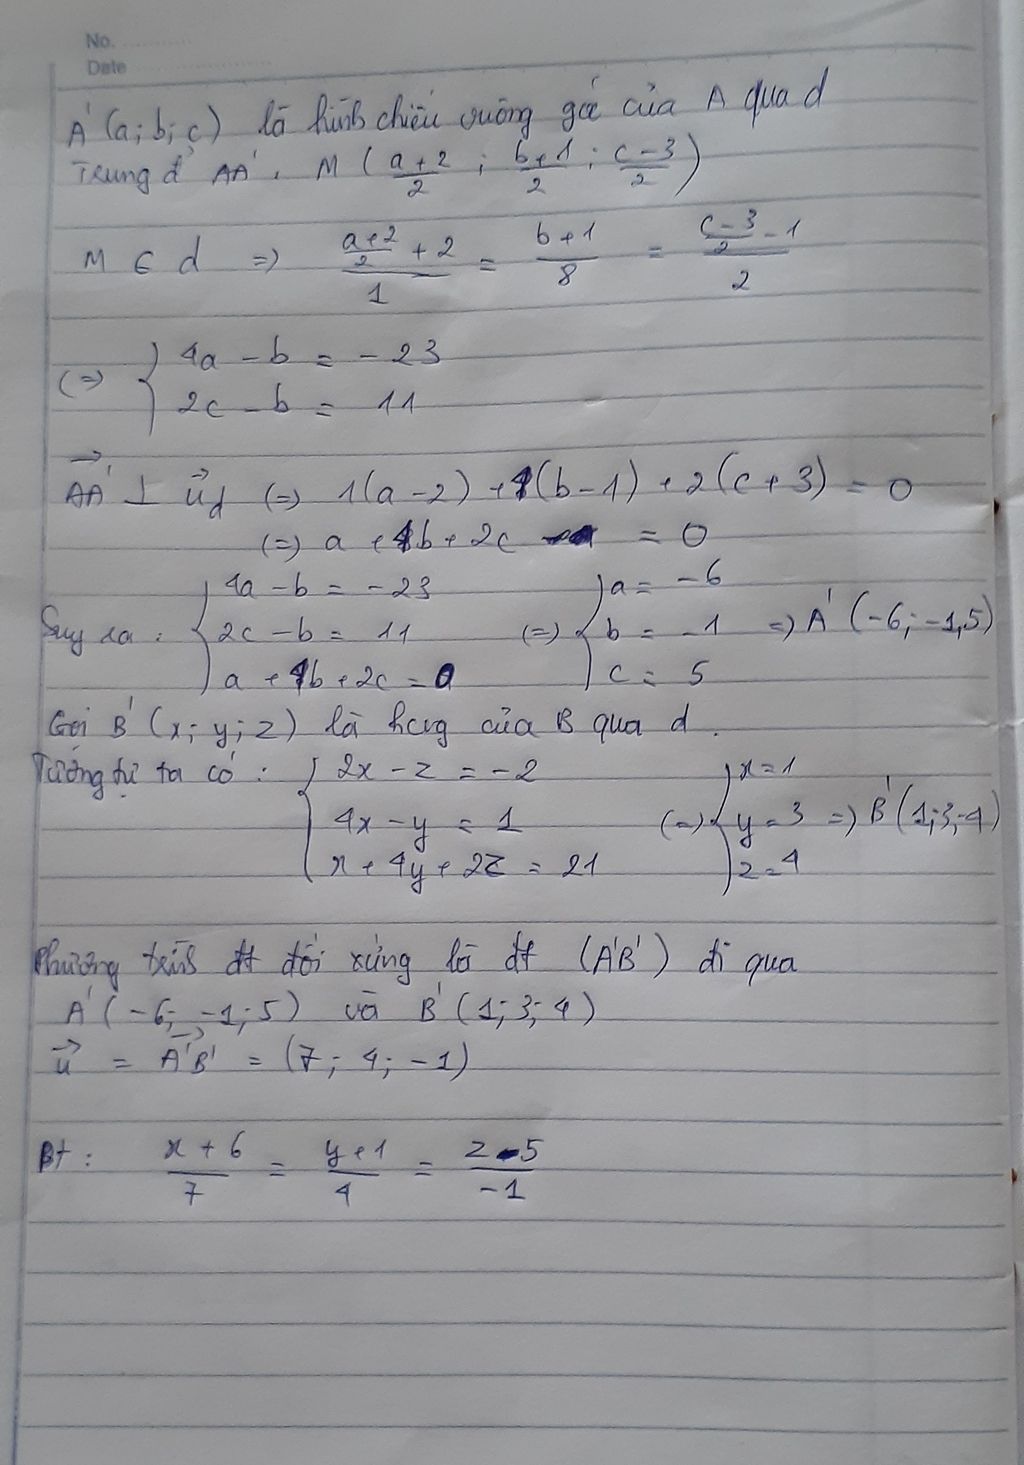 No. ............
Date ....................
A'(a; b; c) là hình chiếu vuông góc của A qua d
Trung đ' AA'. M ( (a+2)/2 ; (b+1)/2 ; (c-3)/2 )
M ∈ d => ((a+2)/2 + 2)/1 = (b+1)/8 = ((c-3)/2 - 1)/2
(=) { 4a - b = -23
2c - b = 11
AA' ⊥ u_d (=) 1(a-2) + 4(b-1) + 2(c+3) = 0
(=) a + 4b + 2c = 0
Suy ra : { 4a - b = -23 ; 2c - b = 11 ; a + 4b + 2c = 0 (=) { a = -6 ; b = -1 ; c = 5 => A'(-6; -1, 5)
Gọi B'(x; y; z) là hcvg của B qua d.
Tương tự ta có : { 2x - z = -2 ; 4x - y = 1 ; x + 4y + 2z = 21 (=) { x = 1 ; y = 3 ; z = 4 => B'(1; 3; 4)
Phương trình đt đối xứng là đt (A'B') đi qua
A'(-6; -1; 5) và B'(1; 3; 4)
u = A'B' = (7; 4; -1)
Pt : (x+6)/7 = (y+1)/4 = (z-5)/-1